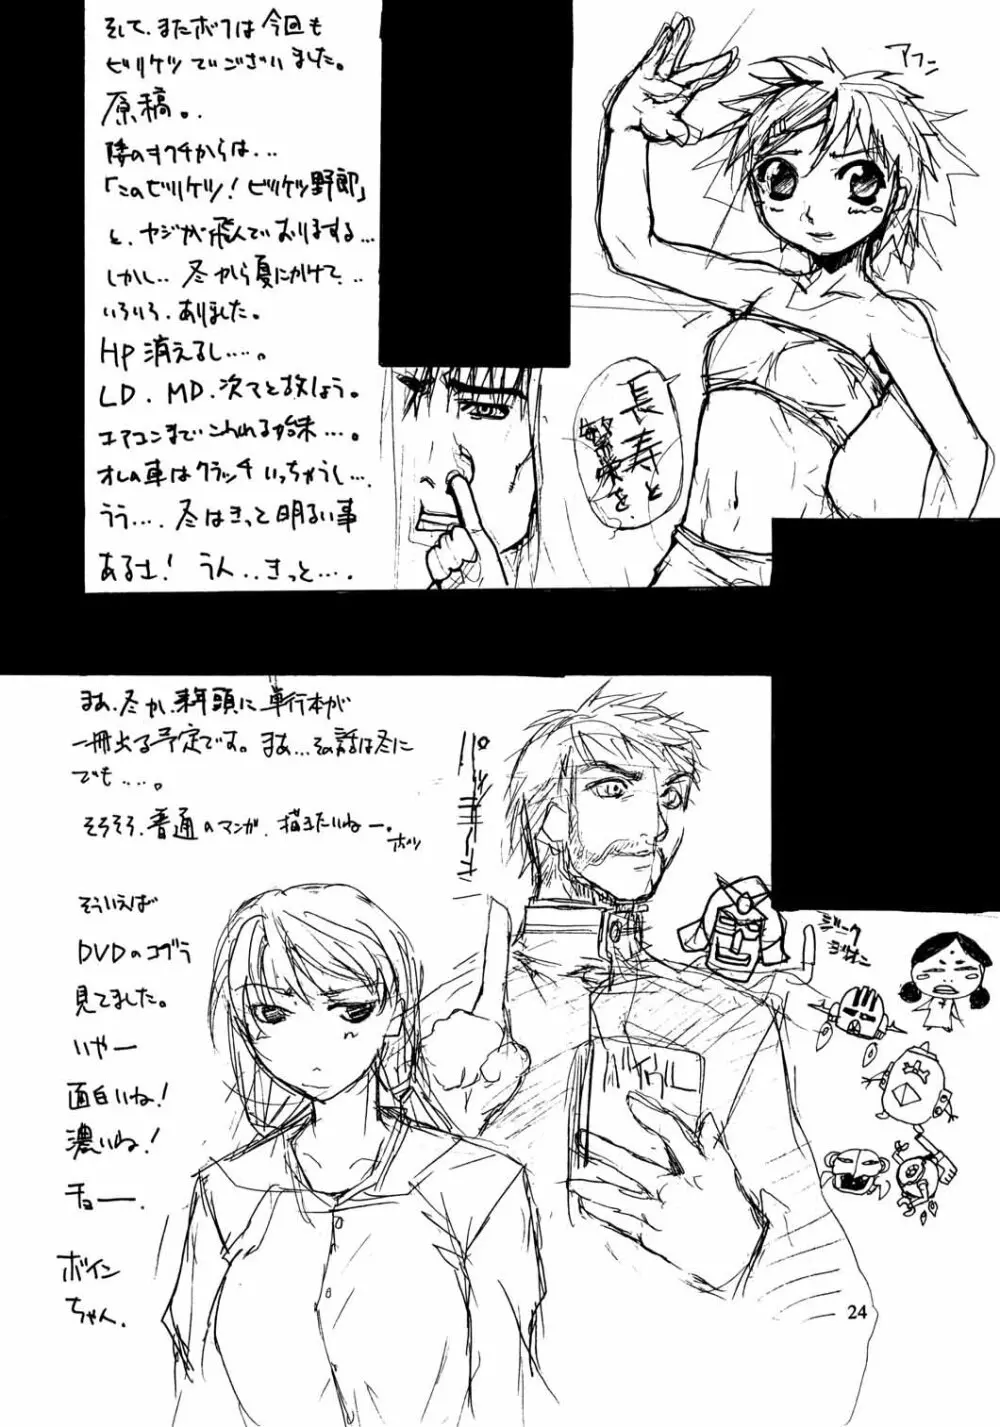 そして、またボクは今回も
ビリケツでございました。
原稿。.
隊のオクチからは...
「このビリケツ！ビリケツ野郎」
と、ヤジが飛んでおりまする...
しかし.. 冬から夏にかけて...
いろいろ、ありました。
HP 消えるし.....。
LD. MD. 次々と故しょう。
エアコンまでこわれる始末....。
オレの車はクラッチいっちゃうし...
うう.... 冬はきっと明るい事
あるさ！ うん.. きっと....
アフン
長寿と
繁栄を。
まぁ、冬か、来年頭に単行本が
一冊出る予定です。まぁ...その話は冬に
でも.....。
そろそろ、普通のマンガ、描きたいねー。
ボソッ
そういえば
DVDのコブラ
見てました。
いやー
面白いね！
濃いね！
チョー.
ボイン
ちゃん.
バイブル
24